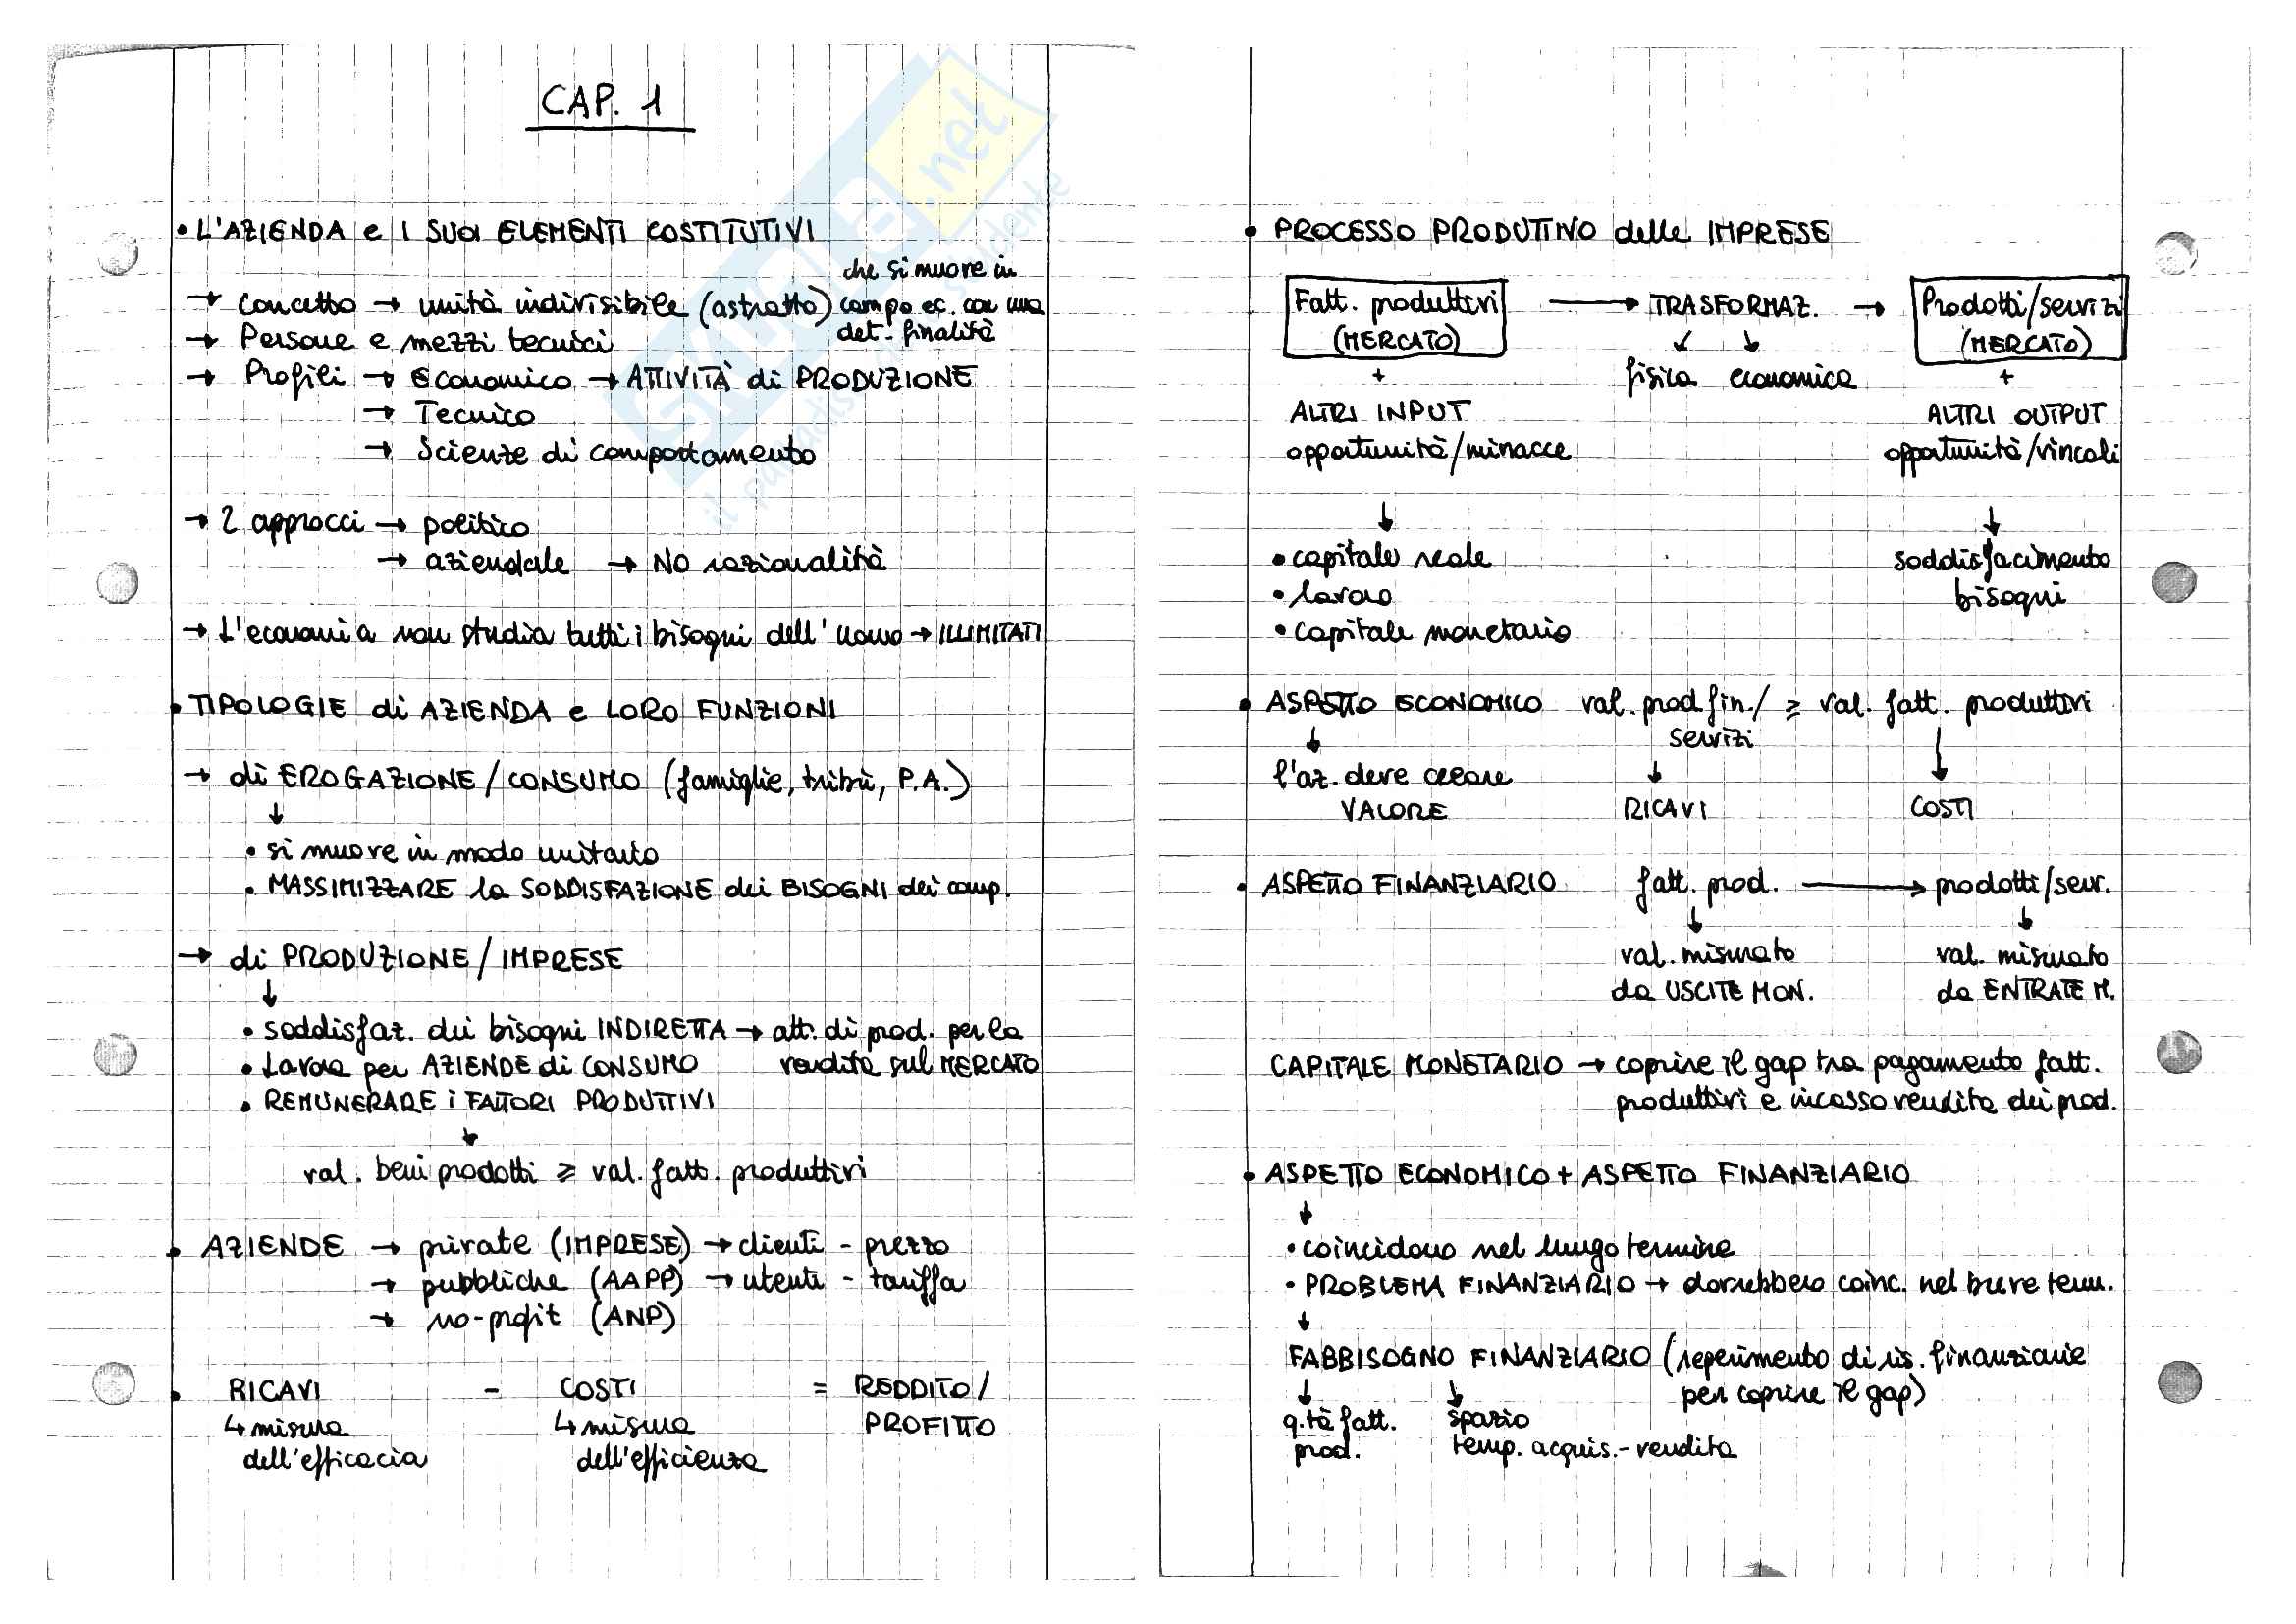 CAP. 1
• L'AZIENDA e I SUOI ELEMENTI COSTITUTIVI
→ concetto → unità indivisibile (astratto) che si muove in campo ec. con una det. finalità
→ Persone e mezzi tecnici
→ Profili → Economico → ATTIVITÀ di PRODUZIONE
→ Tecnico
→ Scienze di comportamento
→ 2 approcci → politico
→ aziendale → NO razionalità
→ L'economia non studia tutti i bisogni dell'uomo → ILLIMITATI
• TIPOLOGIE di AZIENDA e LORO FUNZIONI
→ di EROGAZIONE/CONSUMO (famiglie, tribù, P.A.)
↓
• si muove in modo unitario
• MASSIMIZZARE la SODDISFAZIONE dei BISOGNI dei comp.
→ di PRODUZIONE/IMPRESE
↓
• soddisfaz. dei bisogni INDIRETTA → att. di prod. per la
• Lavora per AZIENDE di CONSUMO vendita sul MERCATO
• REMUNERARE i FATTORI PRODUTTIVI
↓
val. beni prodotti ≥ val. fatt. produttivi
• AZIENDE → private (IMPRESE) → clienti - prezzo
→ pubbliche (AAPP) → utenti - tariffa
→ no-profit (ANP)
• RICAVI - COSTI = REDDITO/
↳ misura ↳ misura PROFITTO
dell'efficacia dell'efficienza
• PROCESSO PRODUTIVO delle IMPRESE
Fatt. produttivi → TRASFORMAZ. → Prodotti/servizi
(MERCATO) ↙ ↘ (MERCATO)
+ fisica economica +
ALTRI INPUT ALTRI OUTPUT
opportunità/minacce opportunità/vincoli
↓ ↓
• capitale reale soddisfacimento
• lavoro bisogni
• capitale monetario
• ASPETTO ECONOMICO val. prod. fin./ ≥ val. fatt. produttivi
↓ servizi ↓
l'az. deve creare ↓
VALORE RICAVI COSTI
• ASPETTO FINANZIARIO fatt. prod. → prodotti/serv.
↓ ↓
val. misurato val. misurato
da USCITE MON. da ENTRATE M.
CAPITALE MONETARIO → coprire il gap tra pagamento fatt.
produttivi e incasso vendita dei prod.
• ASPETTO ECONOMICO + ASPETTO FINANZIARIO
↓
• coincidono nel lungo termine
• PROBLEMA FINANZIARIO → dovrebbero coinc. nel breve term.
↓
FABBISOGNO FINANZIARIO (reperimento di ris. finanziarie
↓ ↓ per coprire il gap)
q.tà fatt. spazio
prod. temp. acquis.-vendita
skuola.net